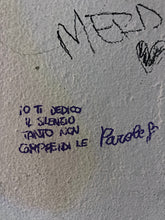 MERD
IO TI DEDICO
IL SILENZIO
TANTO NON
COMPRENDI LE Parole